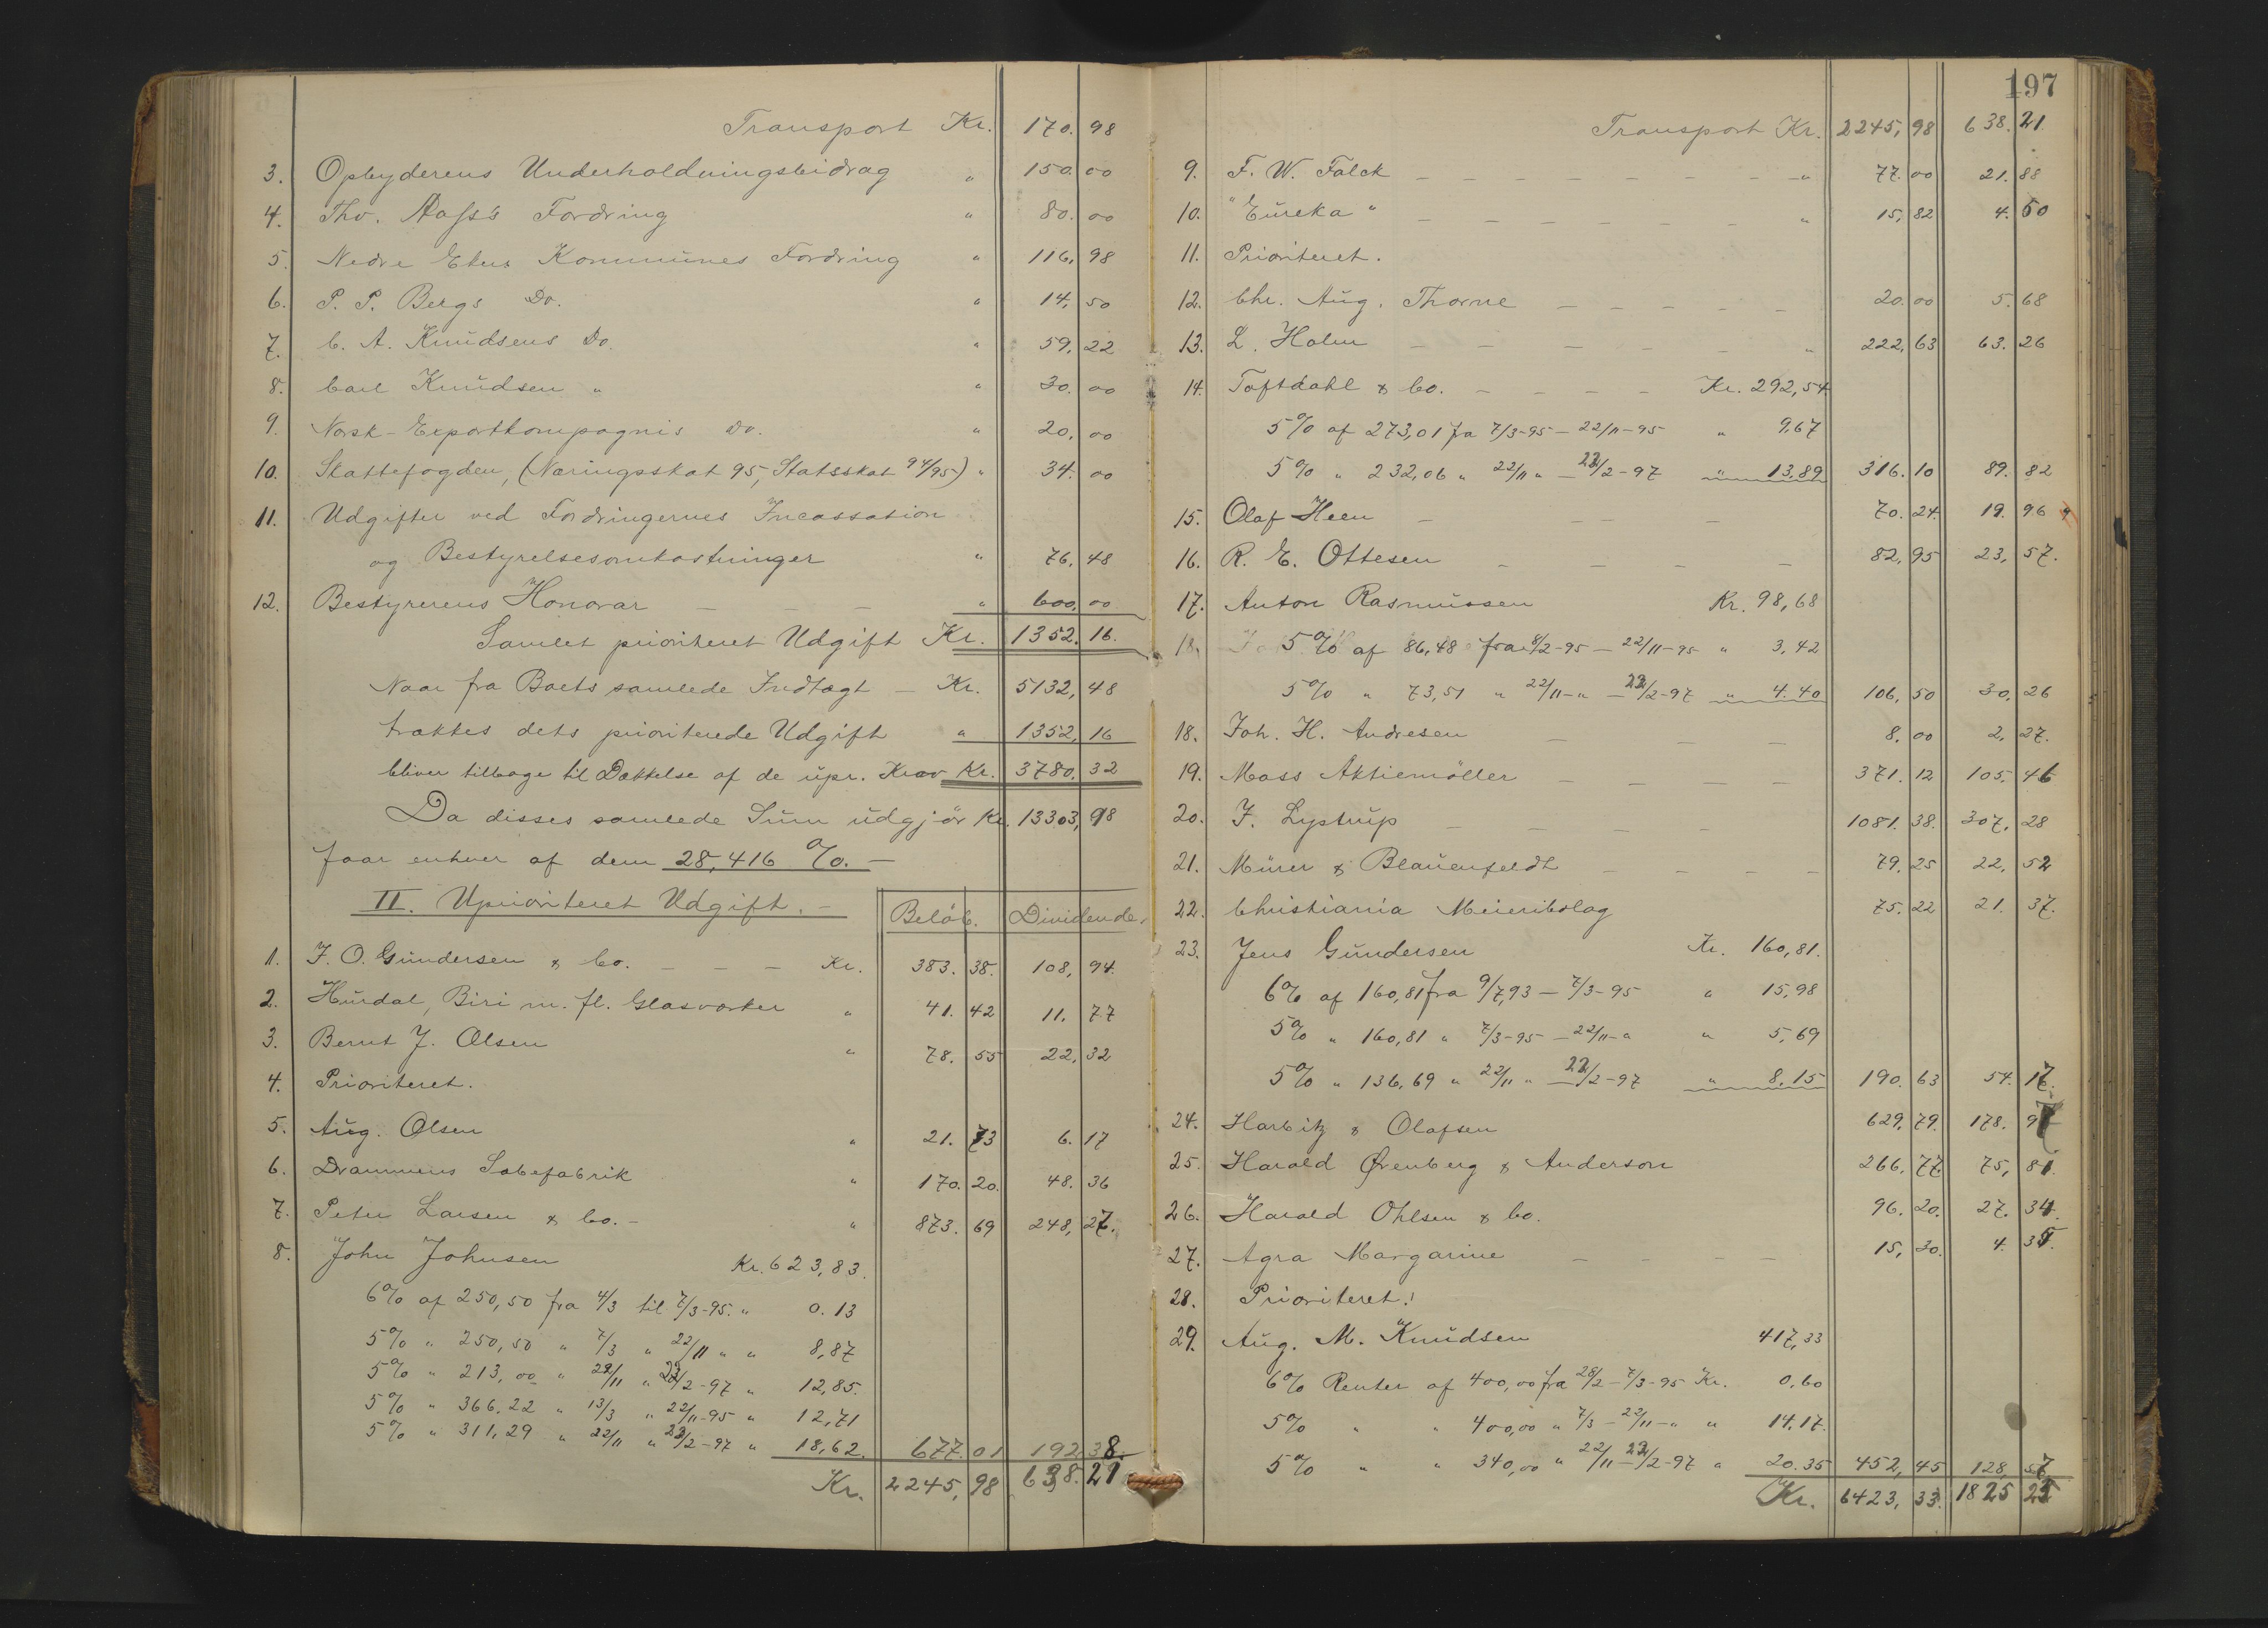 Transport Kr. 170. 98
3. Opbyderens Underholdningsbidrag " 150. 00
4. Thv. Aass's Fordring " 80. 00
5. Nedre Ekers Kommunes Fordring " 116, 98
6. P. P. Bergs Do. " 14, 50
7. C. A. Knudsens Do. " 59, 22
8. Carl Knudsen " " 30. 00
9. Norsk-Exportkompagnis Do. " 20, 00
10. Skattefogden, (Næringsskat 95, Statsskat 94/95) " 34. 00
11. Udgifter ved Fordringernes Incassation
og Bestyrelsesomkostninger " 76, 48
12. Bestyrerens Honorar — — — " 600, 00
Samlet prioriteret Udgift Kr. 1352. 16.
Naar fra Boets samlede Indtægt — Kr. 5132, 48
trækkes dets prioriterede Udgift " 1352, 16
bliver tilbage til Dækkelse af de upr. Krav Kr. 3780. 32
Da disses samlede Sum udgjör Kr. 13303, 98
faar enhver af dem 28,416 %. —
II. Uprioriteret Udgift. — Belöb. Dividende.
1. J. O. Gundersen & Co. — — — Kr. 383. 38. 108, 94.
2. Hurdal, Biri m. fl. Glasværker " 41. 42 11. 77
3. Bernt J. Olsen " 78. 55 22, 32
4. Prioriteret.
5. Aug. Olsen " 21. 73 6. 17
6. Drammens Sæbefabrik " 170. 20. 48. 36
7. Peter Larsen & Co. — " 873. 69 248, 27.
8. John Johnsen Kr. 623,83.
6% af 250,50 fra 4/3 til 7/3-95. " 0. 13
5% " 250,50 " 7/3 " 22/11 " " 8,87
5% " 213,00 " 22/11 " 22/2-97 " 12,85.
5% " 366,22 " 13/3 " 22/11-95 " 12,71
5% " 311,29 " 22/11 " 22/2-97 " 18,62. 677. 01 192 38.
Kr. 2245, 98 638. 21
197
Transport Kr. 2245, 98 638. 21
9. F. W. Falck — — — — — — — — " 77. 00 21. 88
10. "Eureka" — — — — — — — " 15, 82 4. 50
11. Prioriteret.
12. Chr. Aug. Thorne — — — — — 20. 00 5. 68
13. L. Holm — — — — — " 222, 63 63. 26
14. Toftdahl & Co. — — — — Kr. 292,54.
5% af 273,01 fra 7/3-95 — 22/11-95 " 9,67
5% " 232,06 " 22/11 " — 22/2-97 " 13,89 316. 10 89. 82
15. Olaf Heen — — — — 70. 24. 19. 96
16. R. E. Ottesen — — — — 82, 95 23, 57.
17. Anton Rasmussen Kr. 98,68
18. 5% af 86,48 fra 8/2-95 — 22/11-95 " 3,42
5% " 73,51 " 22/11-" — 22/2-97 " 4.40 106, 50 30, 26
18. Joh. H. Andresen — — — 8, 00 2, 27.
19. Moss Aktiemöller — — — — 371. 12 105, 46
20. J. Lystrup — — — — 1081. 38. 307, 28
21. Mürer & Blauenfeldt — — — — 79. 25 22, 52
22. Christiania Meieribolag 75. 22 21. 37.
23. Jens Gundersen Kr. 160,81.
6% af 160,81 fra 9/7,93 — 7/3-95 " 15,98
5% " 160,81 " 7/3-95 — 22/11-" " 5,69
5% " 136,69 " 22/11 " — 22/2-97 " 8,15 190. 63 54. 17.
24. Harbitz & Olafsen 629, 79. 178. 97
25. Harald Örenberg & Anderson 266, 77. 75, 81.
26. Harald Ohlsen & Co. 96. 20. 27. 34.
27. Agra Margarine — — — — 15, 30. 4. 35.
28. Prioriteret!
29. Aug. M. Knudsen 417,33
6% Renter af 400,00 fra 28/2 — 7/3-95 Kr. 0,60
5% " " 400,00 " 7/3 — 22/11-" " 14.17.
5% " " 340,00 " 22/11 — 22/2-97 " 20.35 452, 45 128, 57
Kr. 6423, 33. 1825 23